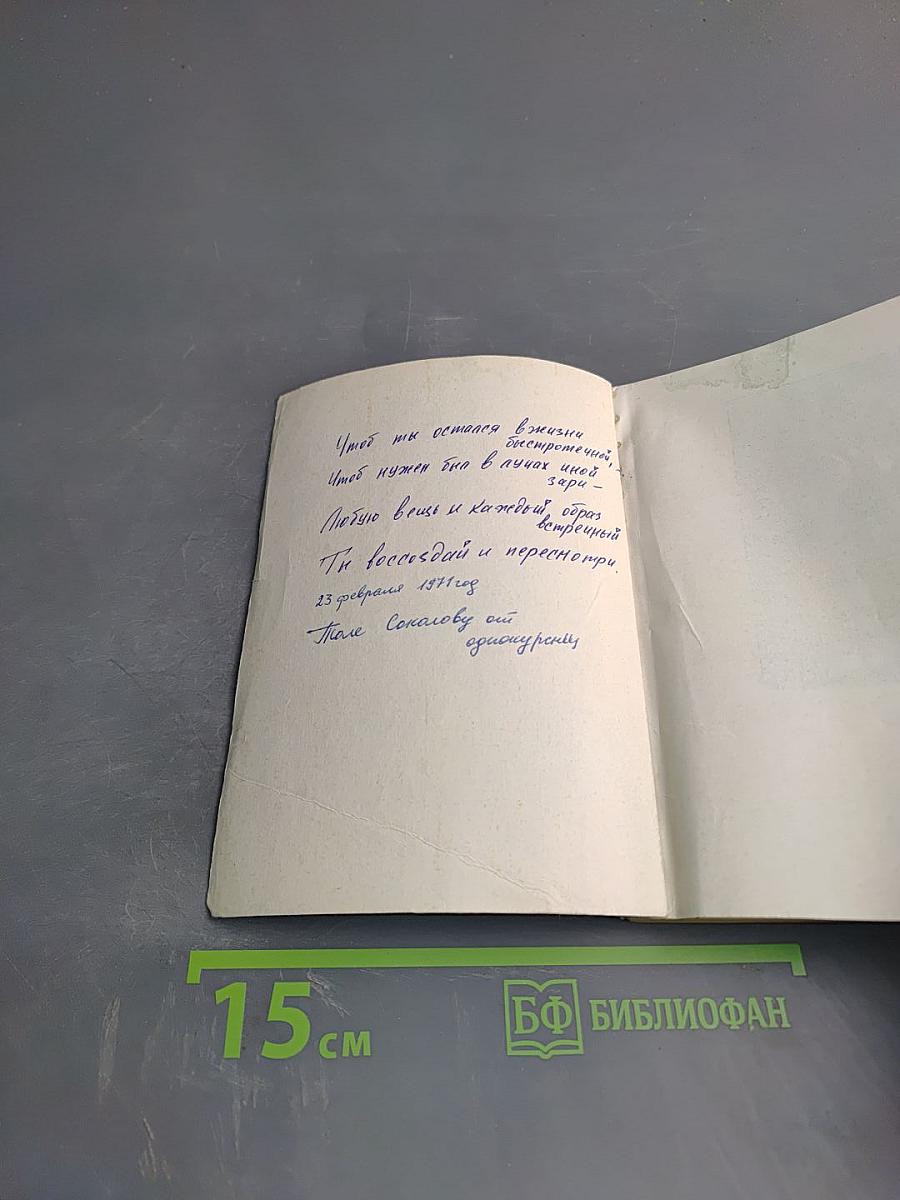 Чтоб ты остался в жизни
быстротечной, –
Чтоб нужен был в лучах иной
зари –
Любую вещь и каждый образ
встречный
Ты воссоздай и пересмотри.
23 февраля 1971 год
Толе Соколову от
однокурсниц
15 см
БФ БИБЛИОФАН